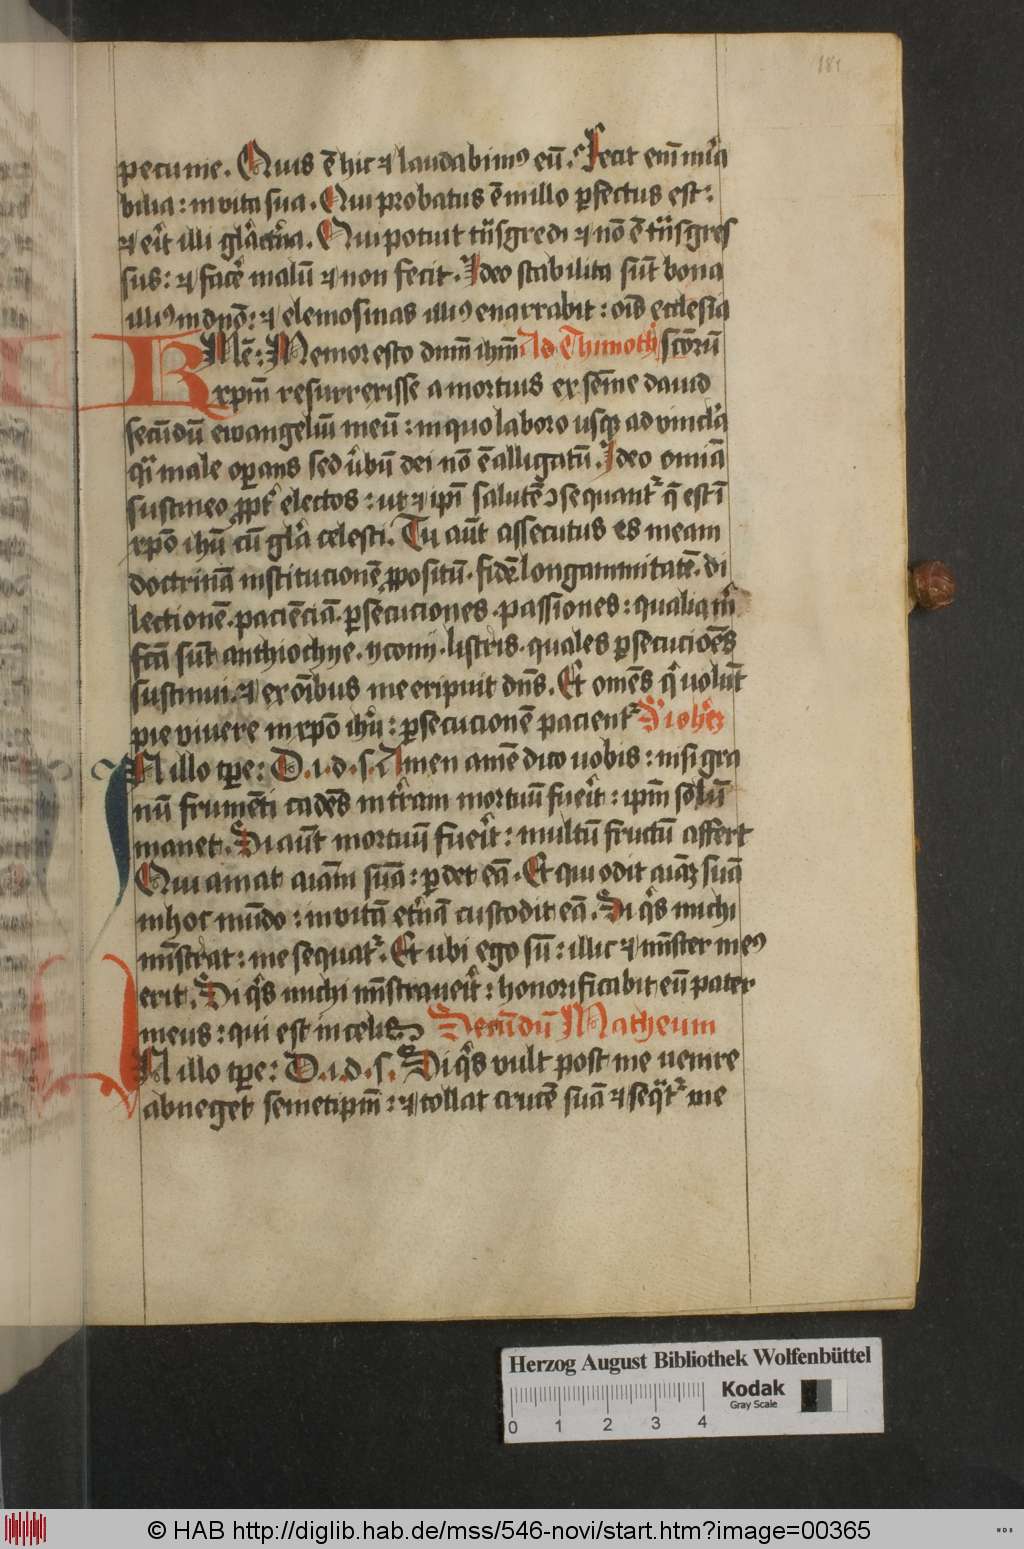 181
pecunie. Quis ē hic ⁊ laudabimꝰ eū. Fecit enī mira
bilia: in vita sua. Qui probatus ē in illo ꝑfectus est:
⁊ erit illi glͣia et̾na. Qui potuit tͣnsgredi ⁊ nō ē tͣnsgres
sus: ⁊ facē malū ⁊ non fecit. Ideo stabilita sūt bona
illiꝰ in dnō: ⁊ elemosinas illiꝰ enarrabit: oīs ecclesia
scōrū
Ad Thimoth
RMē: Memor esto dnm̄ ihm̄
xpm̄ resurrexisse a mortuis ex sem̄ie dauid
secūdū ewangeliū meū: in quo laboro usqꝫ ad vincla
qͣi male oꝑans sed ūbū dei nō ē alligatū. Ideo omīa
sustineo ꝓpt̾ electos: ut ⁊ ipī salutē ꝯsequantᷣ q̄ est ī
xpō ihū cū glͣa celesti. Tu aūt assecutus es meam
doctrinā institucionē ꝓpositū. fidē longanimitatē. di
lectionē. paciēciā. ꝑsecuciones. passiones: qualia m̄
fcā sūt anthiochye. yconij. listris. quales ꝑsecuciōēs
sustinui. ⁊ ex oībus me eripuit dn̄s. Et omēs qͥ uolūt
pie viuere in xpō ihū: ꝑsecucionē pacientᷣ
IN illo tꝑe: D. i. d. s. Amen amē dico uobis: nisi gra
nū frumēti cadēs in t̾ram mortuū fuerit: ipm̄ solū
manet. Si aūt mortuū fuerit: multū fructū affert
Qui amat aiām suā: ꝑdet eā. Et qui odit aiāꝫ suā
in hoc mūdo: in vitā et̾nā custodit eā. Si qͥs michi
mīstrat: me sequatᷣ. Et ubi ego sū: illic ⁊ mīster meꝰ
erit. Si qͥs michi mīstrauerit: honorificabit eū pater
meus: qui est in celis Secūdū Matheum
IN illo tꝑe: D. i. d. s. Si qͥs vult post me uenire
abneget semetipm̄: ⁊ tollat crucē suā ⁊ seqͣtᷣ me
Herzog August Bibliothek Wolfenbüttel
Kodak
Gray Scale
0 1 2 3 4
© HAB http://diglib.hab.de/mss/546-novi/start.htm?image=00365